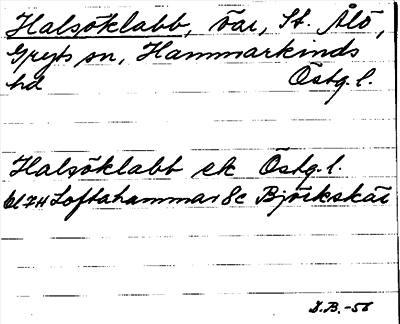 Halsöklabb, öar, St. Ålö,
Gryts sn, Hammarkinds
hd Östg. l.
Halsöklabb ek Östg. l.
bl 7H Loftahammar 8c Björkskär
D.B. -56